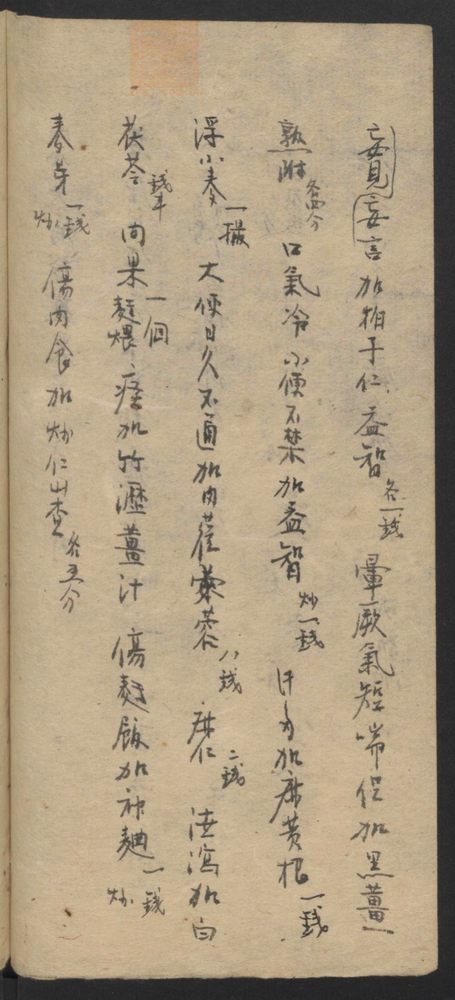 妄見妄言加柏子仁益智各一錢 暈厥氣短喘促加黑薑
熟附各五分 口氣冷小便不禁加益智炒一錢 汗多加麻黃根一錢
浮小麥一撮 大便日久不通加肉蓯蓉八錢 麻仁二錢 洩瀉加白
茯苓錢半 肉果一個麵煨 痰加竹瀝薑汁 傷麵飯加神麯一錢炒
麥芽一錢炒 傷肉食加炒仁山查各五分